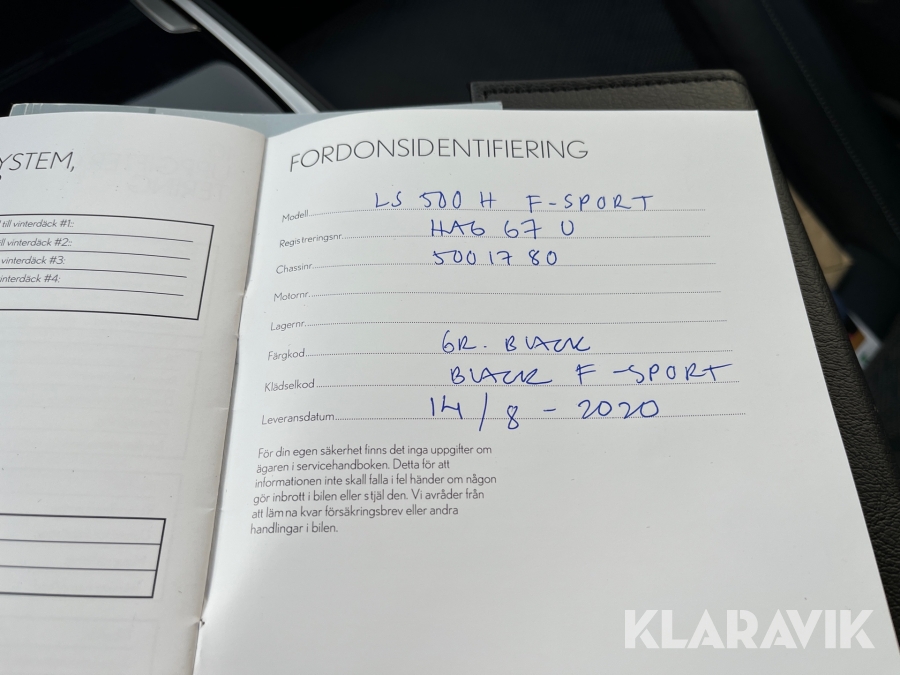 YSTEM,
till vinterdäck #1:
ill vinterdäck #2:
vinterdäck #3:
interdäck #4:
FORDONSIDENTIFIERING
Modell LS 500 H F-SPORT
Registreringsnr. HAG 67 U
Chassinr. 5001780
Motornr.
Lagernr.
Färgkod GR. BLACK
Klädselkod BLACK F-SPORT
Leveransdatum 14/8-2020
För din egen säkerhet finns det inga uppgifter om
ägaren i servicehandboken. Detta för att
informationen inte skall falla i fel händer om någon
gör inbrott i bilen eller stjäl den. Vi avråder från
att lämna kvar försäkringsbrev eller andra
handlingar i bilen.
KLARAVIK